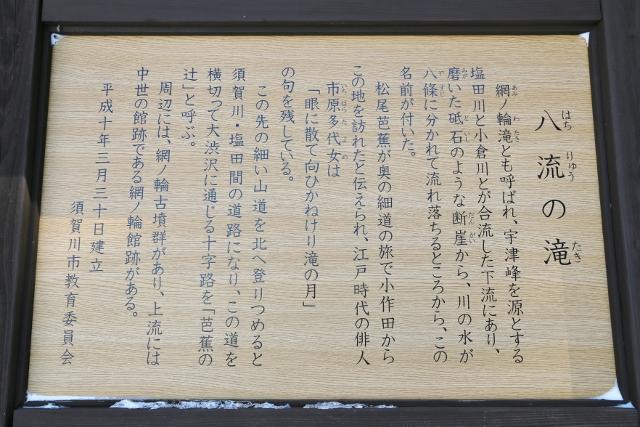 八流の滝
はち りゅう たき
網ノ輪滝とも呼ばれ、宇津峰を源とする
あみ わ たき
塩田川と小倉川とが合流した下流にあり、
磨いた砥石のような断崖から、川の水が
みが といし だんがい
八條に分かれて流れ落ちるところから、この
やすじ
名前が付いた。
松尾芭蕉が奥の細道の旅で小作田から
この地を訪れたと伝えられ、江戸時代の俳人
市原多代女は
いちはらたよめ
「眼に散て向ひかねけり滝の月」
の句を残している。
この先の細い山道を北へ登りつめると
須賀川・塩田間の道路になり、この道を
横切って大渋沢に通じる十字路を「芭蕉の
辻」と呼ぶ。
周辺には、網ノ輪古墳群があり、上流には
中世の館跡である網ノ輪館跡がある。
平成十年三月三十日建立
須賀川市教育委員会